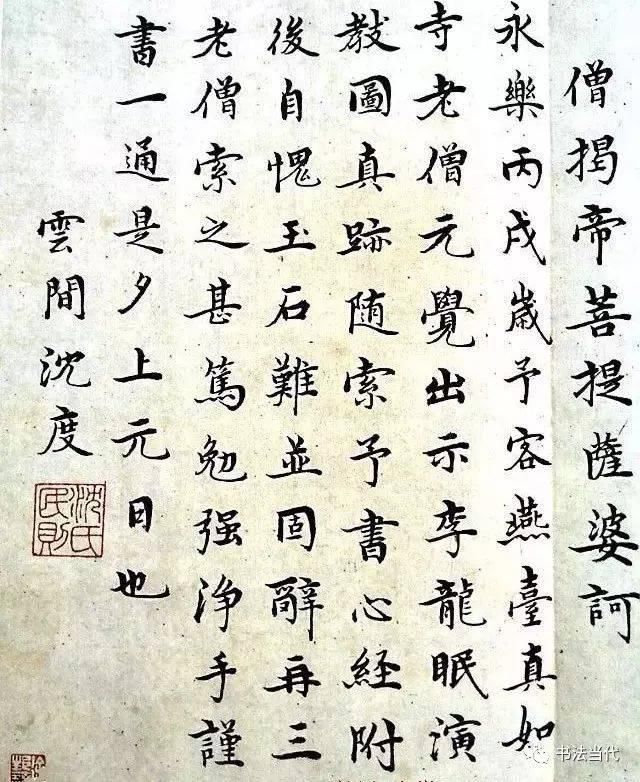 僧揭帝菩提薩婆訶
永樂丙戌歲予客燕臺真如
寺老僧元覺出示李龍眠演
教圖真跡随索予書心経附
後自愧玉石難並固辭再三
老僧索之甚篤勉强浄手謹
書一通是夕上元日也
雲間沈度
沈氏民則
书法当代